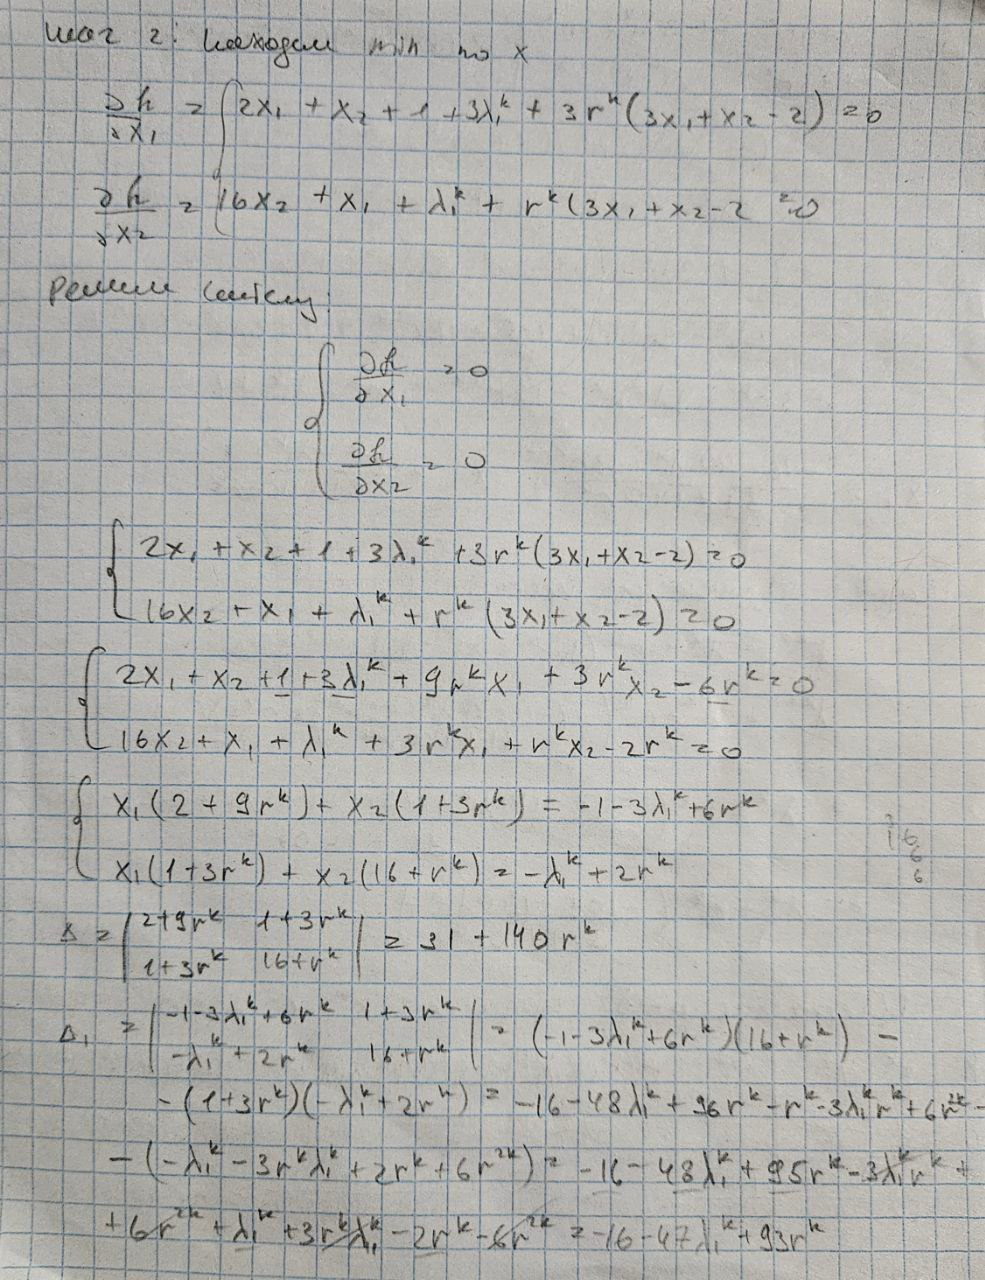 Шаг 2: Находим min по x
∂L/∂x₁ = { 2x₁ + x₂ + 1 + 3λ₁ᵏ + 3rᵏ(3x₁ + x₂ - 2) = 0
∂L/∂x₂ = { 16x₂ + x₁ + λ₁ᵏ + rᵏ(3x₁ + x₂ - 2 = 0
Решим систему:
{ ∂L/∂x₁ = 0
∂L/∂x₂ = 0
{ 2x₁ + x₂ + 1 + 3λ₁ᵏ + 3rᵏ(3x₁ + x₂ - 2) = 0
16x₂ + x₁ + λ₁ᵏ + rᵏ(3x₁ + x₂ - 2) = 0
{ 2x₁ + x₂ + 1 + 3λ₁ᵏ + 9rᵏx₁ + 3rᵏx₂ - 6rᵏ = 0
16x₂ + x₁ + λ₁ᵏ + 3rᵏx₁ + rᵏx₂ - 2rᵏ = 0
{ x₁(2 + 9rᵏ) + x₂(1 + 3rᵏ) = -1 - 3λ₁ᵏ + 6rᵏ
x₁(1 + 3rᵏ) + x₂(16 + rᵏ) = -λ₁ᵏ + 2rᵏ
Δ = | 2+9rᵏ 1+3rᵏ |
| 1+3rᵏ 16+rᵏ | = 31 + 140rᵏ
Δ₁ = | -1-3λ₁ᵏ+6rᵏ 1+3rᵏ |
| -λ₁ᵏ+2rᵏ 16+rᵏ | = (-1-3λ₁ᵏ+6rᵏ)(16+rᵏ) -
- (1+3rᵏ)(-λ₁ᵏ+2rᵏ) = -16 - 48λ₁ᵏ + 96rᵏ - rᵏ - 3λ₁ᵏrᵏ + 6r²ᵏ -
- (-λ₁ᵏ - 3rᵏλ₁ᵏ + 2rᵏ + 6r²ᵏ) = -16 - 48λ₁ᵏ + 95rᵏ - 3λ₁ᵏrᵏ +
+ 6r²ᵏ + λ₁ᵏ + 3rᵏλ₁ᵏ - 2rᵏ - 6r²ᵏ = -16 - 47λ₁ᵏ + 93rᵏ